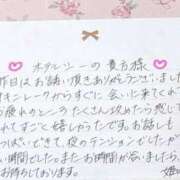 ホテルシーの貴方様
昨日はお誘い頂きありがとうございました
キンシークからすぐに会いに来てくれ
お疲れのとこのたくさん攻めたら感じ
れてすごく嬉しかったです お話しも
っぱいできて、夜のテンションでした
い時間でした またお時間が合いましたら、
お待ちしております